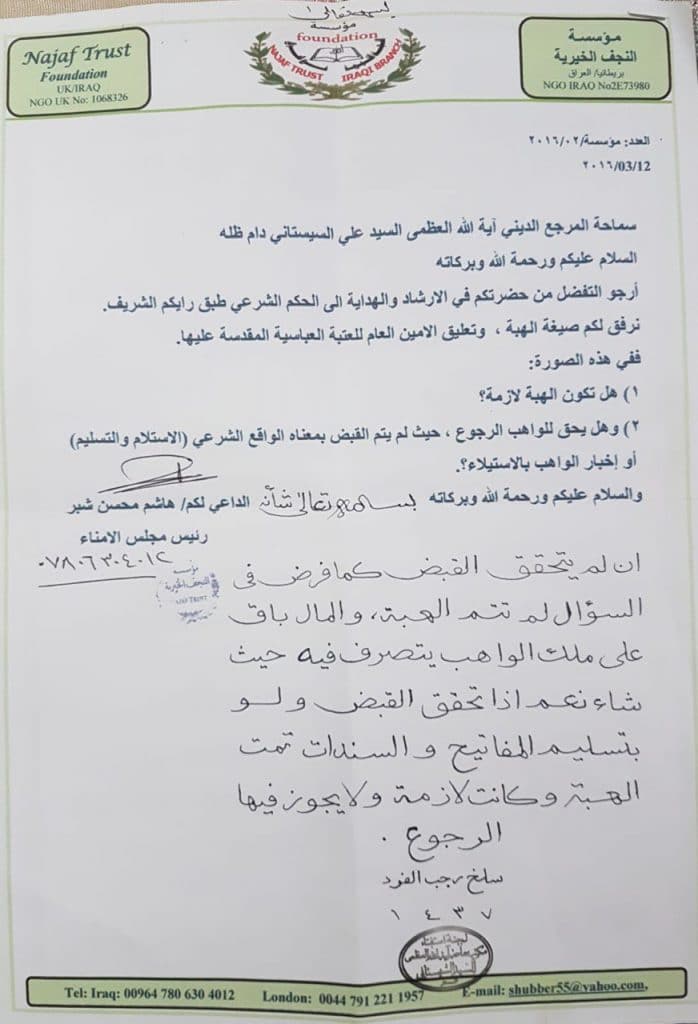 بسمه تعالى
Najaf Trust
Foundation
UK/IRAQ
NGO UK No: 1068326
مؤسسة
foundation
NAJAF TRUST IRAQI BRANCH
مؤسسة
النجف الخيرية
بريطانيا/ العراق
NGO IRAQ No2E73980
العدد: مؤسسة/٢٠١٦/٠٢
٢٠١٦/03/12
سماحة المرجع الديني آية الله العظمى السيد علي السيستاني دام ظله
السلام عليكم ورحمة الله وبركاته
أرجو التفضل من حضرتكم في الارشاد والهداية الى الحكم الشرعي طبق رايكم الشريف.
نرفق لكم صيغة الهبة ، وتعليق الامين العام للعتبة العباسية المقدسة عليها.
ففي هذه الصورة:
١) هل تكون الهبة لازمة؟
٢) وهل يحق للواهب الرجوع ، حيث لم يتم القبض بمعناه الواقع الشرعي (الاستلام والتسليم)
أو إخبار الواهب بالاستيلاء؟.
والسلام عليكم ورحمة الله وبركاته
بسمه تعالى شأنه
الداعي لكم/ هاشم محسن شبر
رئيس مجلس الامناء
٠٧٨٠٦٣٠٤٠١٢
مؤسسة
النجف الخيرية
ان لم يتحقق القبض كما فرض في
السؤال لم تتم الهبة، والمال باق
على ملك الواهب يتصرف فيه حيث
شاء نعم اذا تحقق القبض ولو
بتسليم المفاتيح والسندات تمت
الهبة وكانت لازمة ولا يجوز فيها
الرجوع .
سلخ رجب الفرد
١٤٣٧
لجنة استفتاء
Tel: Iraq: 00964 780 630 4012 London: 0044 791 221 1957 E-mail: shubber55@yahoo.com,